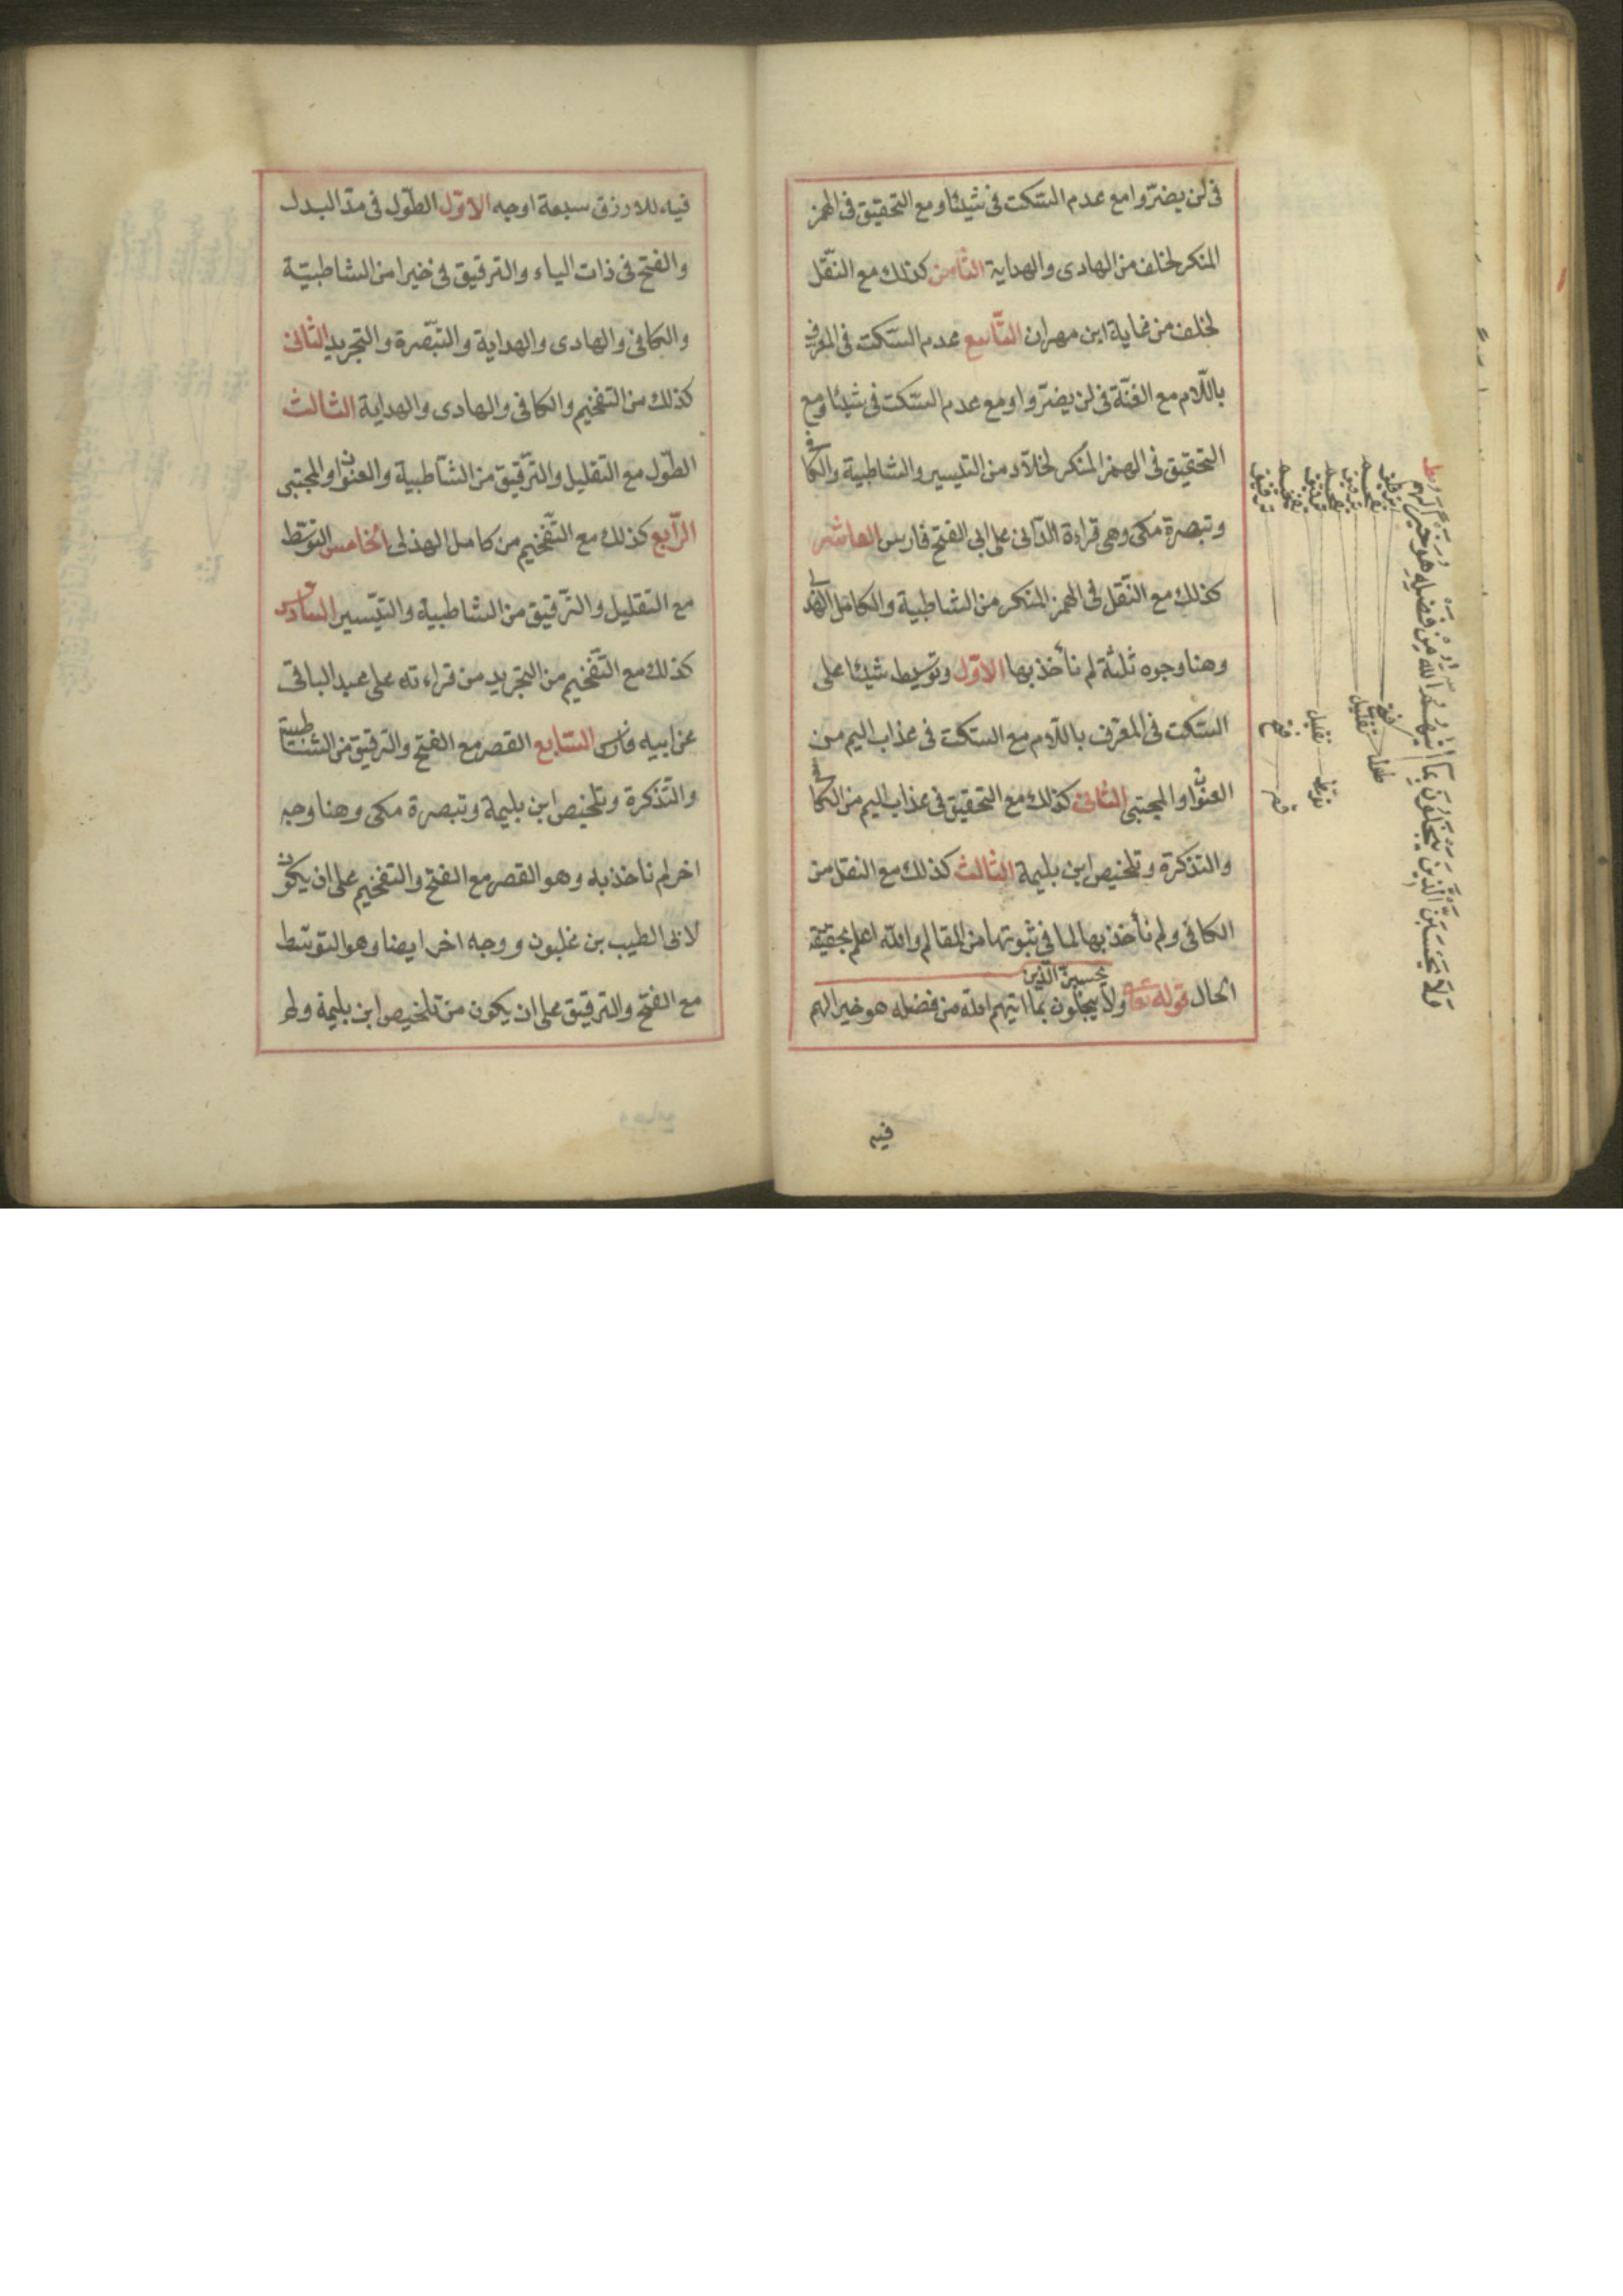 فى لن يضرّوا مع عدم السّكت فى شيئا ومع التحقيق فى الهمز
المنكر لخلف من الهادى والهداية الثّامن كذلك مع النّقل
لخلف من غاية ابن مهران التّاسع عدم السّكت فى المعرف
باللّام مع الغنّة فى لن يضرّوا ومع عدم السّكت فى شيئا ومع
التحقيق فى الهمز المنكر لخلّاد من التيسير والشاطبية والكافى
وتبصرة مكى وهى قراءة الدّانى على ابى الفتح فارس العاشر
كذلك مع النّقل فى الهمز المنكر من الشاطبية والكامل الهذلى
وهنا وجوه ثلثة لم نأخذ بها الاوّل وتوسيط شيئا على
السّكت فى المعرّف باللّام مع السكت فى عذاب اليم من
العنوان والمجتبى الثّانى كذلك مع التحقيق فى عذاب اليم من الكافى
والتذكرة وتلخيص ابن بليمة الثالث كذلك مع النقل من
الكافى ولم نأخذ بها لما فى ثبوتها من المقال والله اعلم بحقيقة
الحال قوله تعالى ولا يحسبنّ الّذين يبخلون بما اتيهم الله من فضله هو خيرا لهم
فيه
وَلَا يَحْسَبَنَّ الَّذِينَ يَبْخَلُونَ بِمَا اٰتٰيهُمُ اللّٰهُ مِنْ فَضْلِهِ هُوَ خَيْرًا لَهُمْ
طول
توسّط
قصر
فتح
تقليل
تقليل
فتح
ترقيق
تفخيم
ترقيق
تفخيم
ترقيق
تفخيم
ترقيق
فيه للازرق سبعة اوجه الاوّل الطّول فى مدّ البدل
والفتح فى ذات الياء والترقيق فى خيرا من الشاطبيّة
والكافى والهادى والهداية والتّبصرة والتجريد الثّانى
كذلك من التفخيم والكافى والهادى والهداية الثالث
الطّول مع التقليل والتّرقيق من الشّاطبية والعنوان والمجتبى
الرّابع كذلك مع التّفخيم من كامل الهذلى الخامس التوسّط
مع التقليل والتّرقيق من الشاطبية والتّيسير السّادس
كذلك مع التّفخيم من التجريد من قراءته على عبد الباقى
عن ابيه فارس السّابع القصر مع الفتح والترقيق من الشّاطبية
والتّذكرة وتلخيص ابن بليمة وتبصرة مكى وهنا وجه
اخر لم ناخذ به وهو القصر مع الفتح والتفخيم على ان يكون
لابى الطيب بن غلبون ووجه اخر ايضا وهو التوسّط
مع الفتح والترقيق على ان يكون من تلخيص ابن بليمة ولم